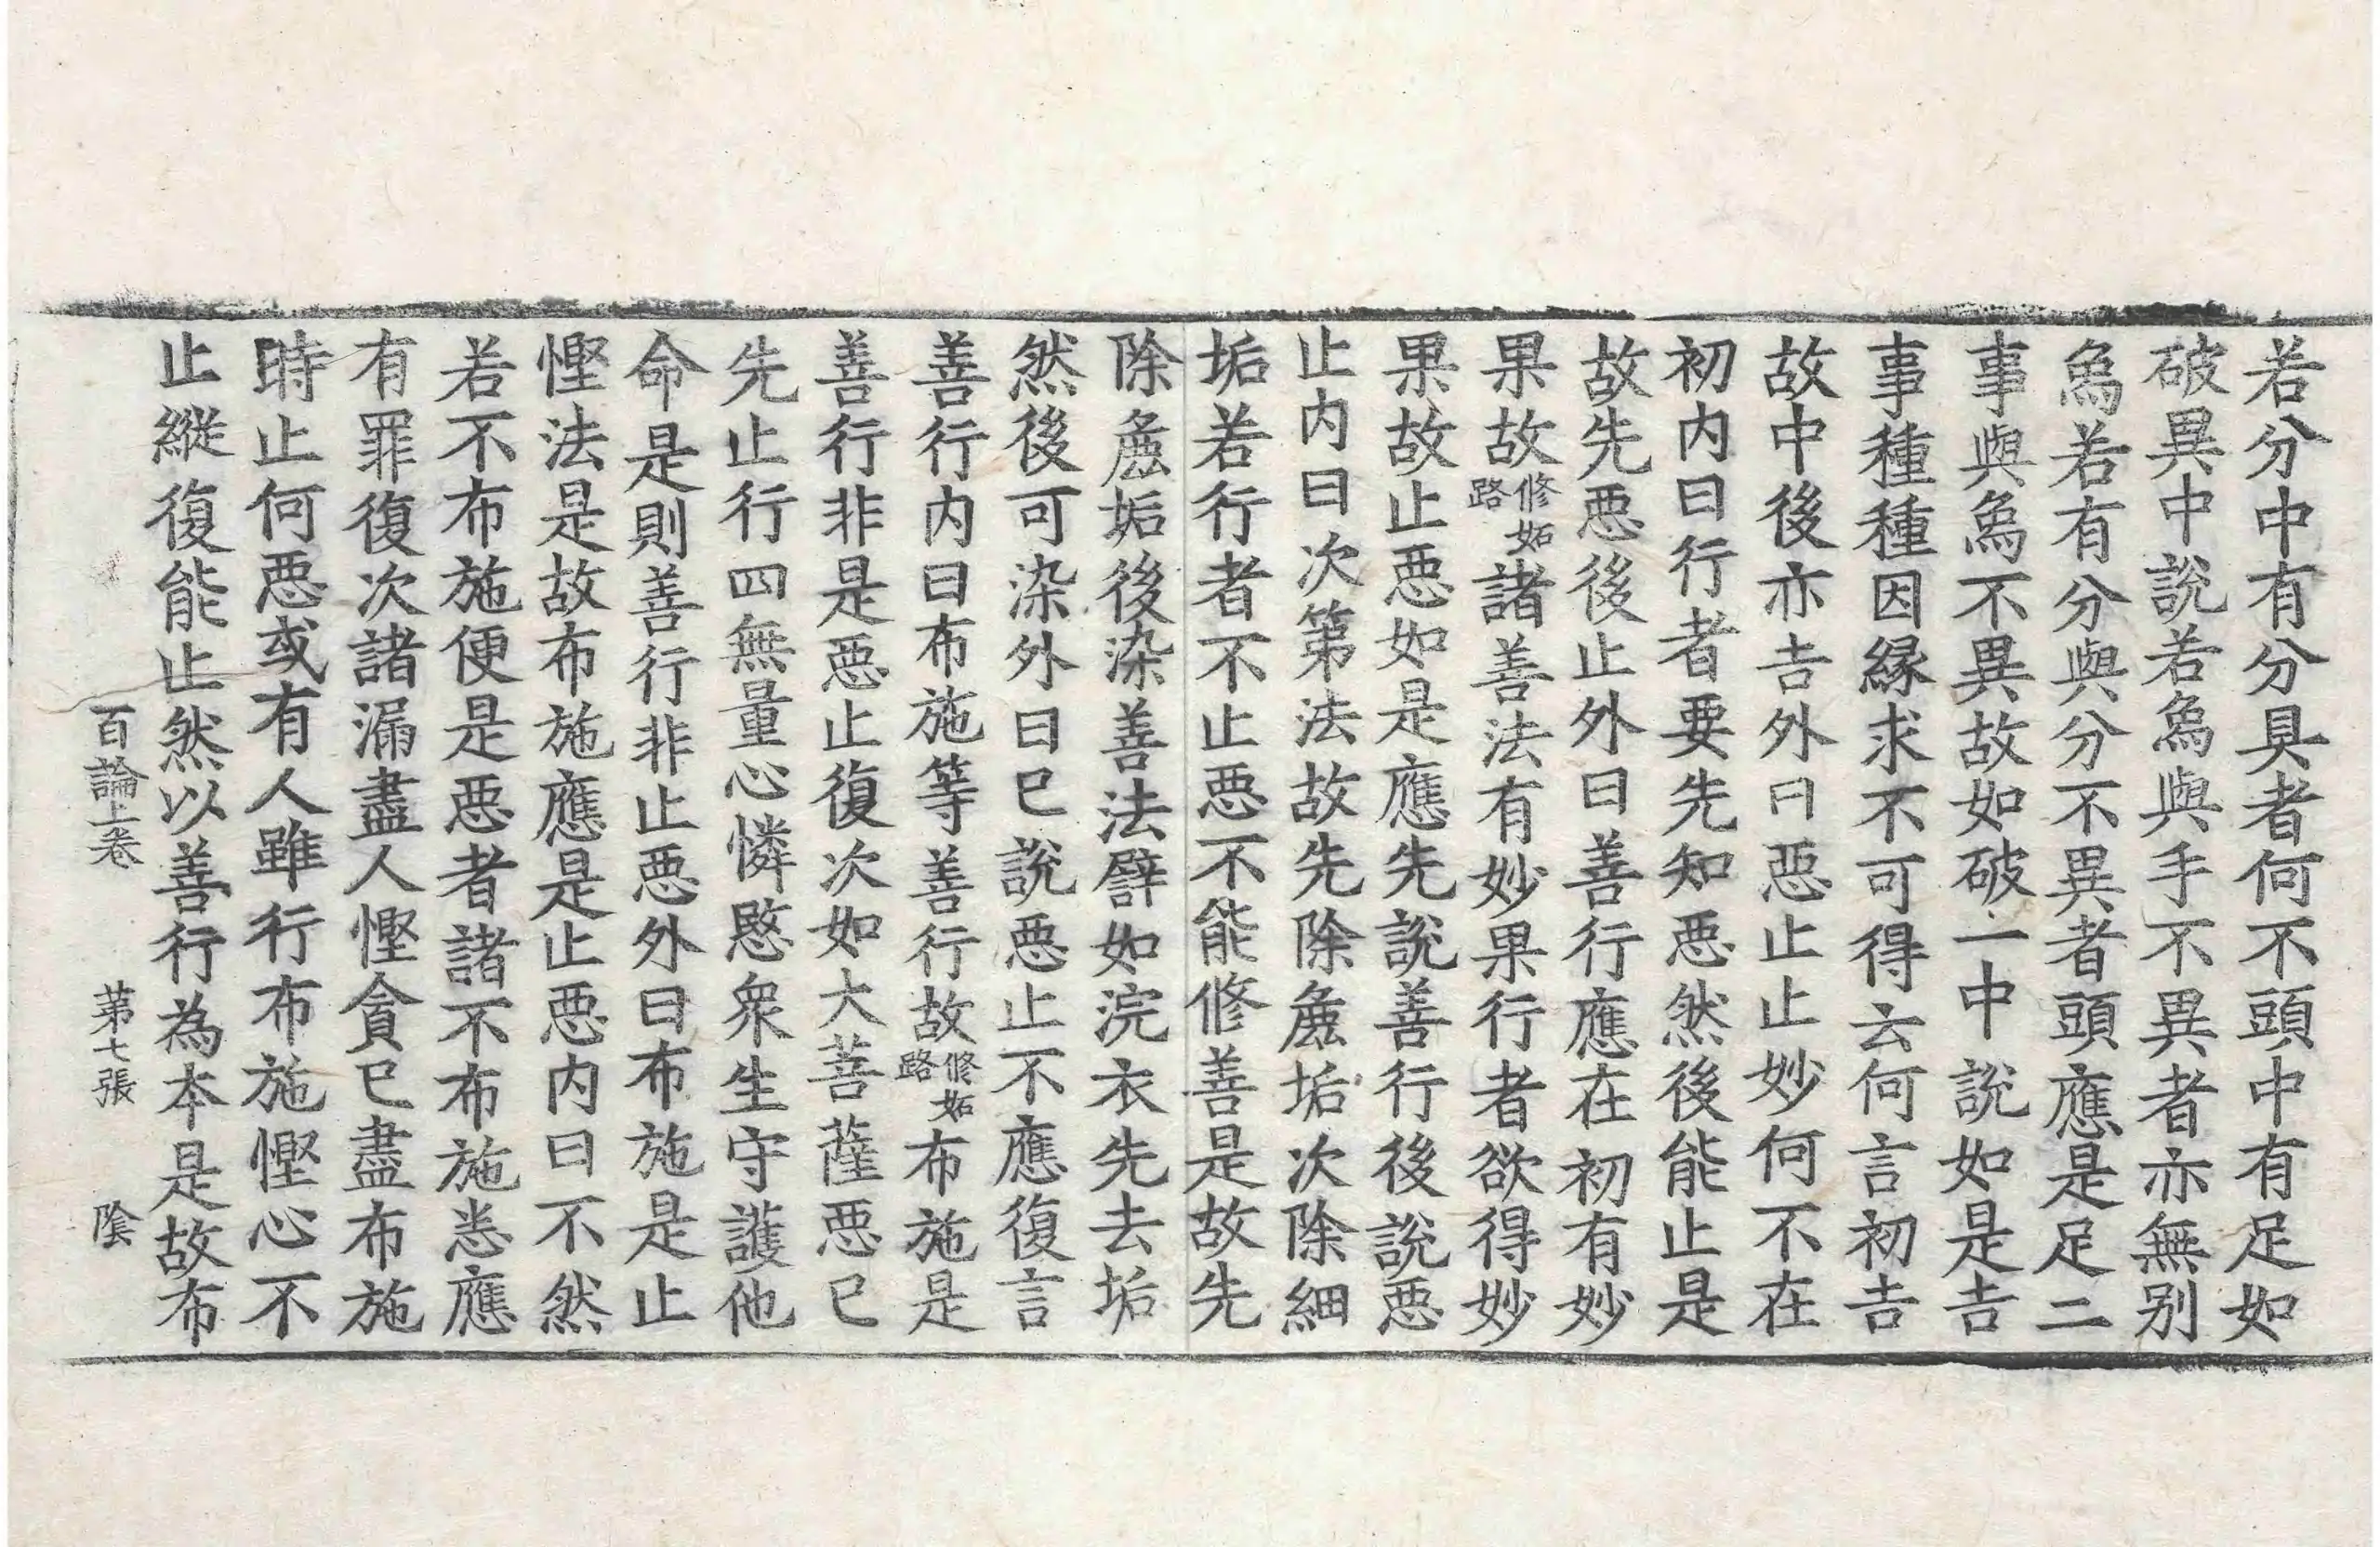 若分中有分具者何不頭中有足如
破異中說若烏與手不異者亦無别
烏若有分與分不異者頭應是足二
事與烏不異故如破一中說如是吉
事種種因緣求不可得云何言初吉
故中後亦吉外曰惡止止妙何不在
初内曰行者要先知惡然後能止是
故先惡後止外曰善行應在初有妙
果故修妬路諸善法有妙果行者欲得妙
果故止惡如是應先說善行後說惡
止内曰次第法故先除麁垢次除細
垢若行者不止惡不能修善是故先
除麁垢後染善法譬如浣衣先去垢
然後可染外曰已說惡止不應復言
善行内曰布施等善行故修妬路布施是
善行非是惡止復次如大菩薩惡已
先止行四無量心憐愍衆生守護他
命是則善行非止惡外曰布施是止
慳法是故布施應是止惡内曰不然
若不布施便是惡者諸不布施悉應
有罪復次諸漏盡人慳貪已盡布施
時止何惡或有人雖行布施慳心不
止縱復能止然以善行為本是故布
百論上卷 第七張 陰